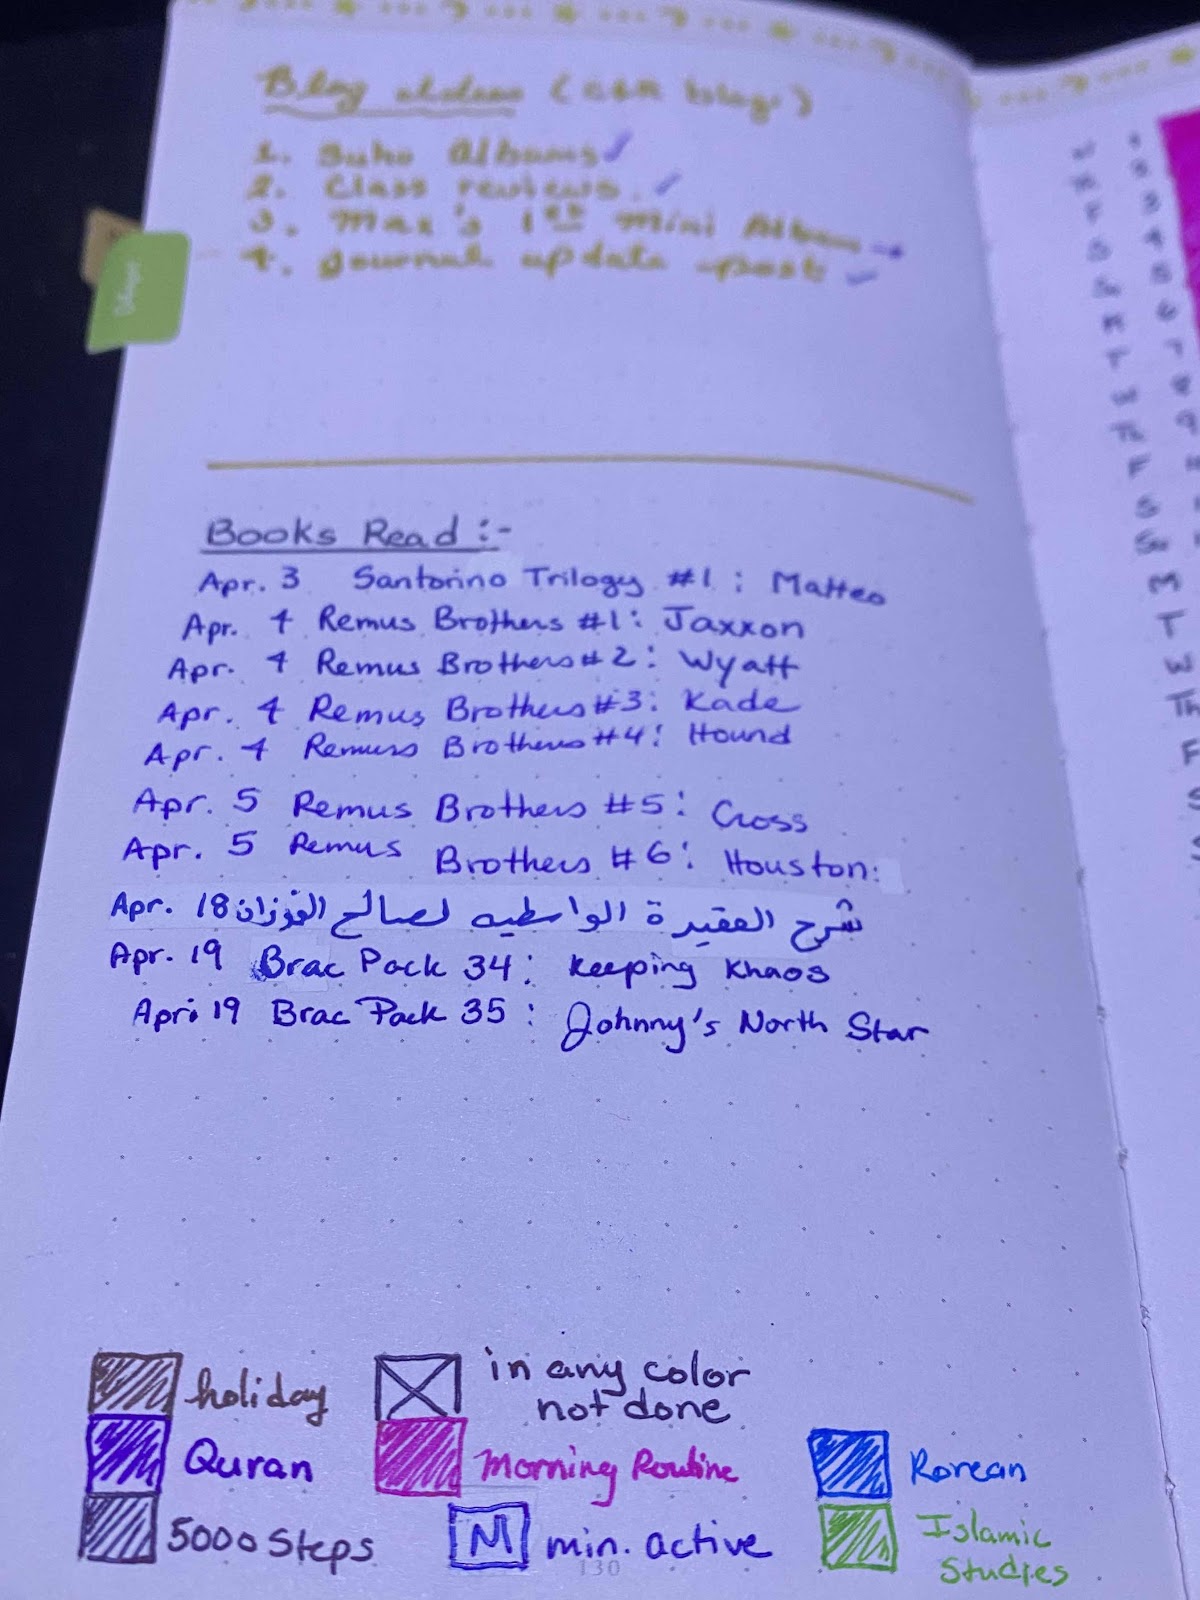 Blog ideas (C&R blog)
1. Suho Albums ✓
2. Class reviews. ✓
3. Max's 1st Mini Album →
4. Journal update post ✓
Books Read :-
Apr. 3 Santorino Trilogy #1 : Matteo
Apr. 4 Remus Brothers #1: Jaxxon
Apr. 4 Remus Brothers #2: Wyatt
Apr. 4 Remus Brothers #3: Kade
Apr. 4 Remus Brothers #4: Hound
Apr. 5 Remus Brothers #5: Cross
Apr. 5 Remus Brothers #6: Houston:
Apr. 18 شرح العقيدة الواسطيه لصالح الفوزان
Apr. 19 Brac Pack 34: Keeping Khaos
Apr. 19 Brac Pack 35 : Johnny's North Star
holiday
in any color
not done
Quran
Morning Routine
Korean
5000 Steps
M min. active
Islamic
Studies
130
W 1
Th 2
F 3
S 4
Su 5
M 6
T 7
W 8
Th 9
F
S
Su
M
T
W
Th
F
S